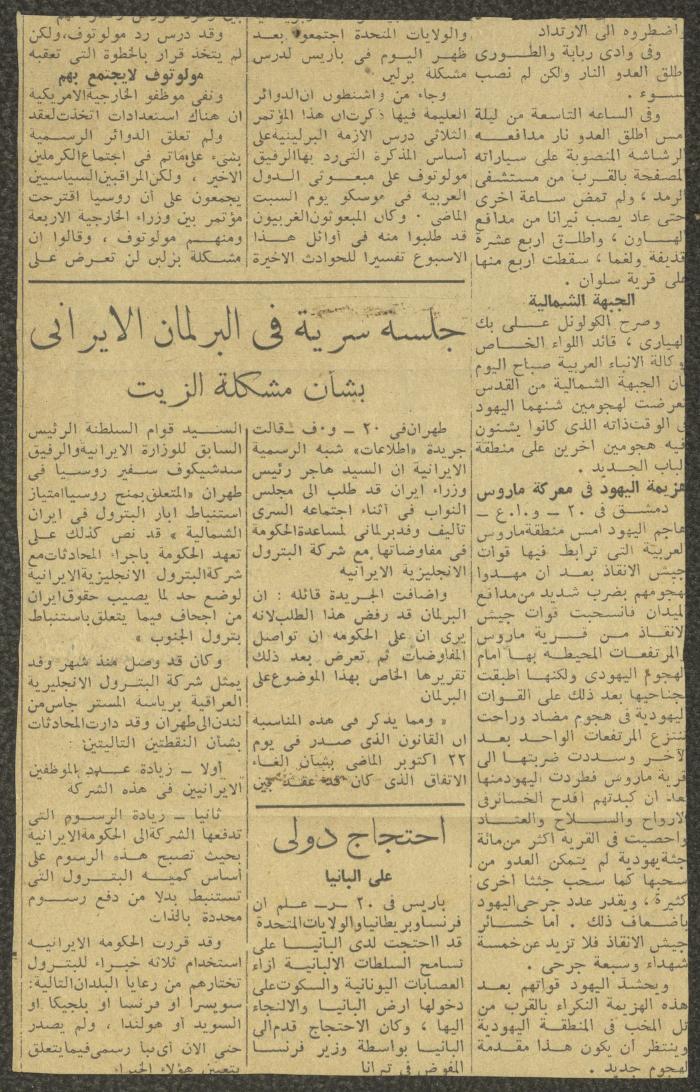 اضطروه الى الارتداد
وفى وادى ربابة والطـــورى
اطلق العدو النار ولكن لم نصب
بسوء .
وفى الساعه التاسعة من ليلة
امس اطلق العدو نار مدافعـــه
الرشاشه المنصوبة على سياراته
المصفحة بالقرب من مستشفى
الرمد ، ولم تمض ساعة اخرى
حتى عاد يصب نيرانا من مدافع
الهـاون ، واطلــق اربع عشرة
قذيفة ولغما ، سقطت اربع منها
على قرية سلوان .
الجبهة الشمالية
وصرح الكولونل عـــلى بك
الهيارى ، قائد اللواء الخــاص
لوكالة الانباء العربية صباح اليوم
بان الجبهة الشمالية من القدس
تعرضت لهجومين شنهما اليهود
فى الوقت ذاته الذى كانوا يشنون
فيه هجومين اخرين على منطقة
الباب الجــديد .
هزيمة اليهود فى معركة ماروس
دمشــق فى ٢٠ ــ و.ا.ع ــ
هاجم اليهود امس منطقة ماروس
العربية التى ترابط فيها قوات
جيش الانقاذ بعد ان مهــدوا
لهجومهم بضرب شديد من مدافع
الميدان فانسحبت قوات جيش
الانقاذ مـن قــرية ماروس
والمرتفعات المحيطه بها امام
الهجوم اليهودى ولكنها اطبقت
بجناحيها بعد ذلك على القــوات
اليهودية فى هجوم مضاد وراحت
تنتزع المرتفعات الواحد بعــد
الآخر وسددت ضربتها الى
قرية ماروس فطردت اليهود منها
بعد ان كبدتهم افدح الخسائر فى
الارواح والســلاح والعتـــاد
واحصيت فى القريه اكثر من مائة
جثة يهودية لم يتمكن العدو من
سحبها كما سحب جثثا اخرى
كثيرة ، ويقدر عدد جرحى اليهود
باضعاف ذلك . اما خســائر
جيش الانقاذ فلا تزيد عن خمسة
شهداء وسبعة جرحى .
ويحشد اليهود قواتهم بعــد
هذه الهزيمة النكراء بالقرب من
تل المخب فى المنطقة اليهودية
وينتظر أن يكون هذا مقدمة
لهجوم جديد .
والولايات المتحدة اجتمعوا بعــد
ظهر اليوم فى باريس لدرس
مشكلة برلين
وجاء من واشنطون ان الدوائر
العليمة فيها ذكرت ان هذا المؤتمر
الثلاثى درس الازمة البرلينية على
أساس المذكرة التى رد بها الرفيق
مولوتوف على مبعــوثى الــدول
الغربيه فى موسكو يوم السبت
الماضى . وكان المبعوثون الغربيون
قد طلبوا منه فى أوائل هــذا
الاسبوع تفسيرا للحوادث الاخيرة
وقد درس رد مولوتوف، ولكن
لم يتخذ قرار بالخطوة التى تعقبه
مولوتوف لايجتمع بهم
ونفى موظفو الخارجية الامريكية
ان هناك استعدادات اتخذت لعقد
ولم تعلق الدوائر الرســمية
بشىء على ماتم فى اجتماع الكرملين
الاخير ، ولكن المراقبين السياسيين
يجمعون على أن روسيا اقترحت
مؤتمر بين وزراء الخارجية الاربعة
ومنهــم مولوتوف ، وقالوا ان
مشــكلة برلين لن تعرض على
جلسه سرية فى البرلمان الايرانى
بشان مشكلة الزيت
طهران فى ٢٠ ــ و٠ف ــ قالت
جريدة «اطلاعات» شبه الرسمية
الايرانية ان السيد هاجر رئيس
وزراء ايران قد طلب الى مجلس
النواب فى اثناء اجتماعه السرى
تأليف وفد برلمانى لمساعدة الحكومة
فى مفاوضاتها مع شركة البترول
الانجليزية الايرانيه
واضافت الجريدة قائله : ان
البرلمان قد رفض هذا الطلب لانه
يرى ان على الحكومه ان تواصل
المفاوضات ثم تعرض بعد ذلك
تقريرها الخاص بهذا الموضوع على
البرلمان
« ومما يذكر فى هذه المناسبة
ان القانون الذى صــدر فى يوم
٢٢ اكتوبر الماضى بشأن الغــاء
الاتفاق الذى كان قد عقــد بين
الســيد قوام السلطنة الرئيس
السابق للوزارة الايرانية والرفيق
سدشيكوف سـفير روســيا فى
طهران «المتعلق بمنح روسيا امتياز
استنباط ابار البترول فى ايران
الشمالية » قد نص كذلك عــلى
تعهد الحكومة باجراء المحادثات مع
شركة البترول الانجليزية الايرانية
لوضع حد لما يصيب حقوق ايران
من اجحاف فيما يتعلق باستنباط
بترول الجنوب »
وكان قد وصل منذ شهر وفد
يمثل شركة البتـرول الانجليزية
العراقية برياسة المستر جاس من
لندن الى طهران وقد دارت المحادثات
بشأن النقطتين التاليتين :
أولا ــ زيادة عــدد الموظفين
الايرانيين فى هذه الشركة
ثانيا ــ زيادة الرسوم التى
تدفعها الشركة الى الحكومة الايرانية
بحيث تصبح هــذه الرسوم على
أساس كميــة البتــرول التى
تستنبط بدلا من دفع رســوم
محددة بالذات
وقد قررت الحكومه الايرانيــة
استخدام ثلاثه خبراء للبترول
تختارهم من رعايا البلدان التالية:
سويسرا او فرنسا او بلجيكا او
السويد أو هولندا ، ولم يصدر
حتى الآن أى نبأ رسمى فيما يتعلق
بتعيين هؤلاء الخبراء
احتجاج دولى
على البانيا
باريس فى ٢٠ ــ رــ علـم ان
فرنسا وبريطانيا والولايات المتحدة
قد احتجت لدى البانيـا على
تسامح السلطات الالبانية ازاء
العصابات اليونانية والسكوت على
دخولها ارض البانيا والالتجاء
اليها ، وكان الاحتجاج قدم الى
البانيا بواسطة وزير فرنســا
المفوض فى تيرانا